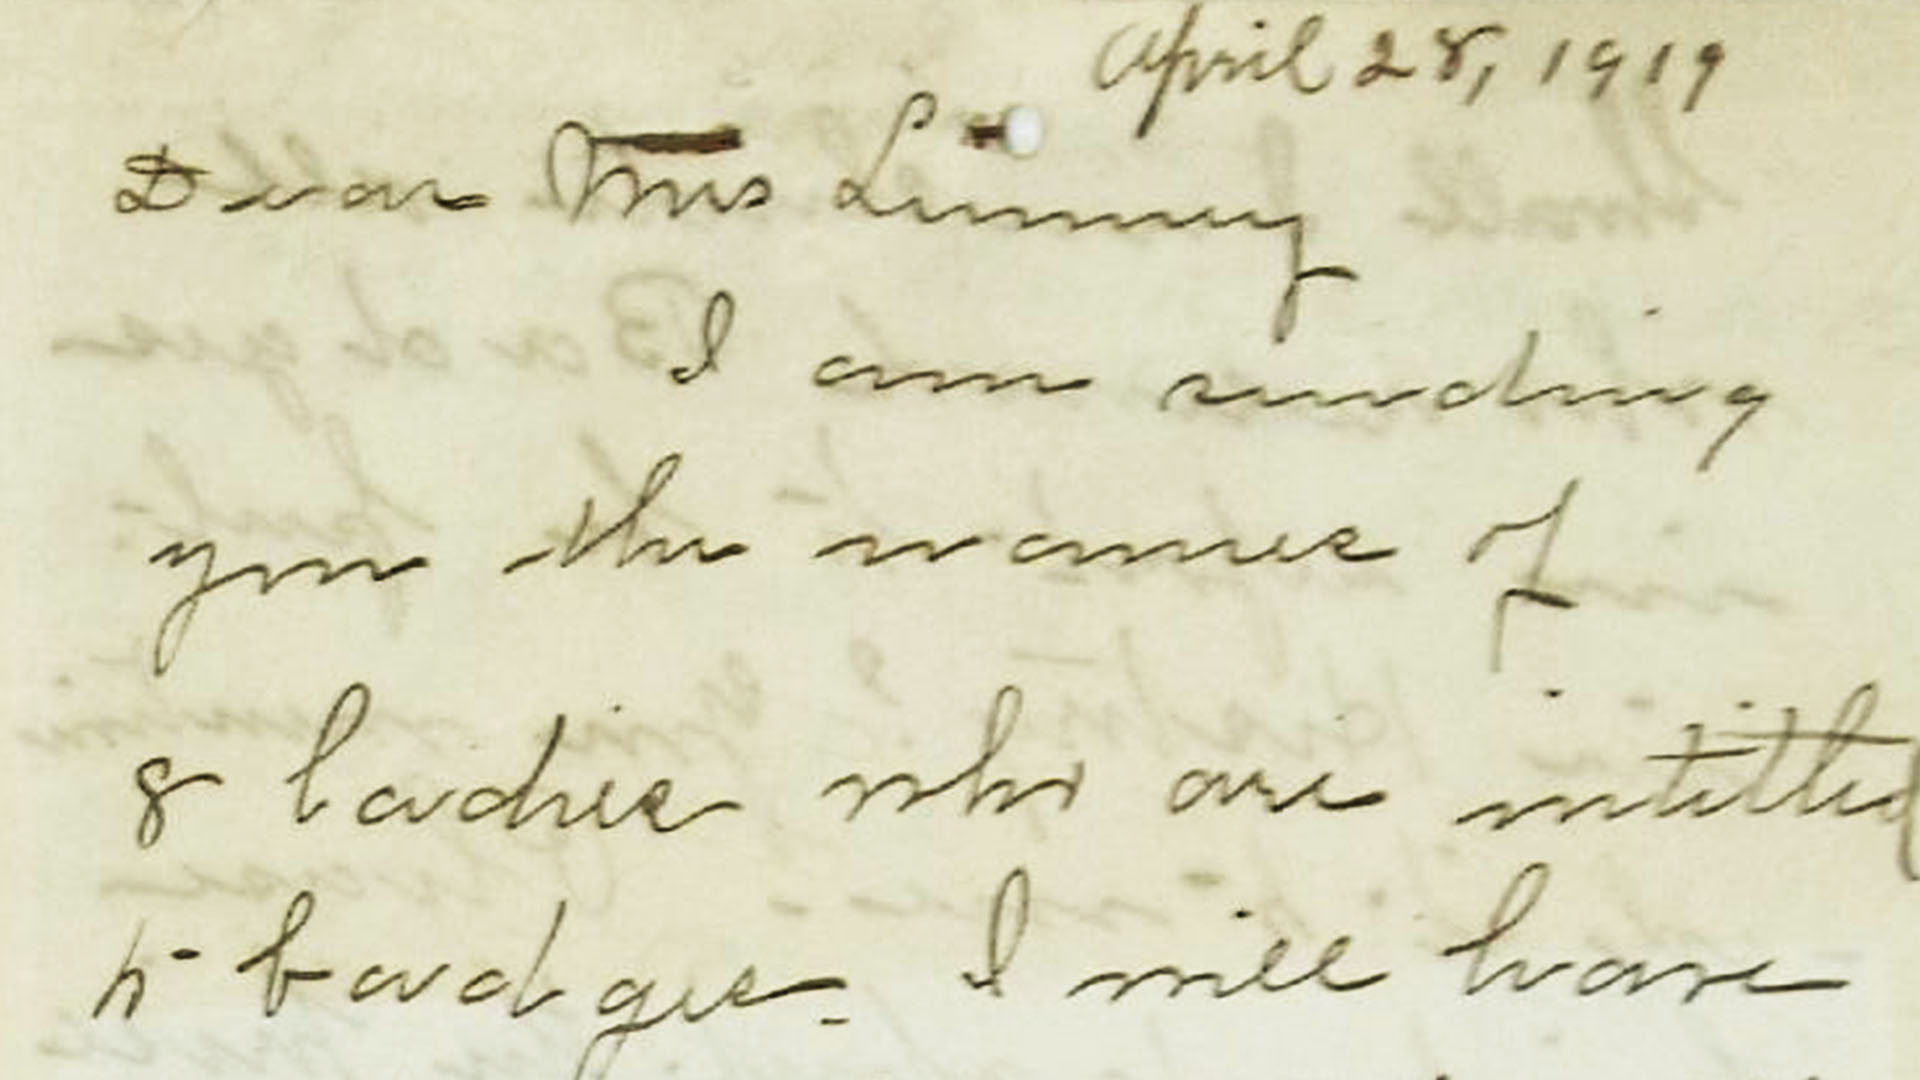 April 28, 1919
Dear Mrs Linney
I am sending
you the names of
8 ladies who are intitled
to badges. I will have